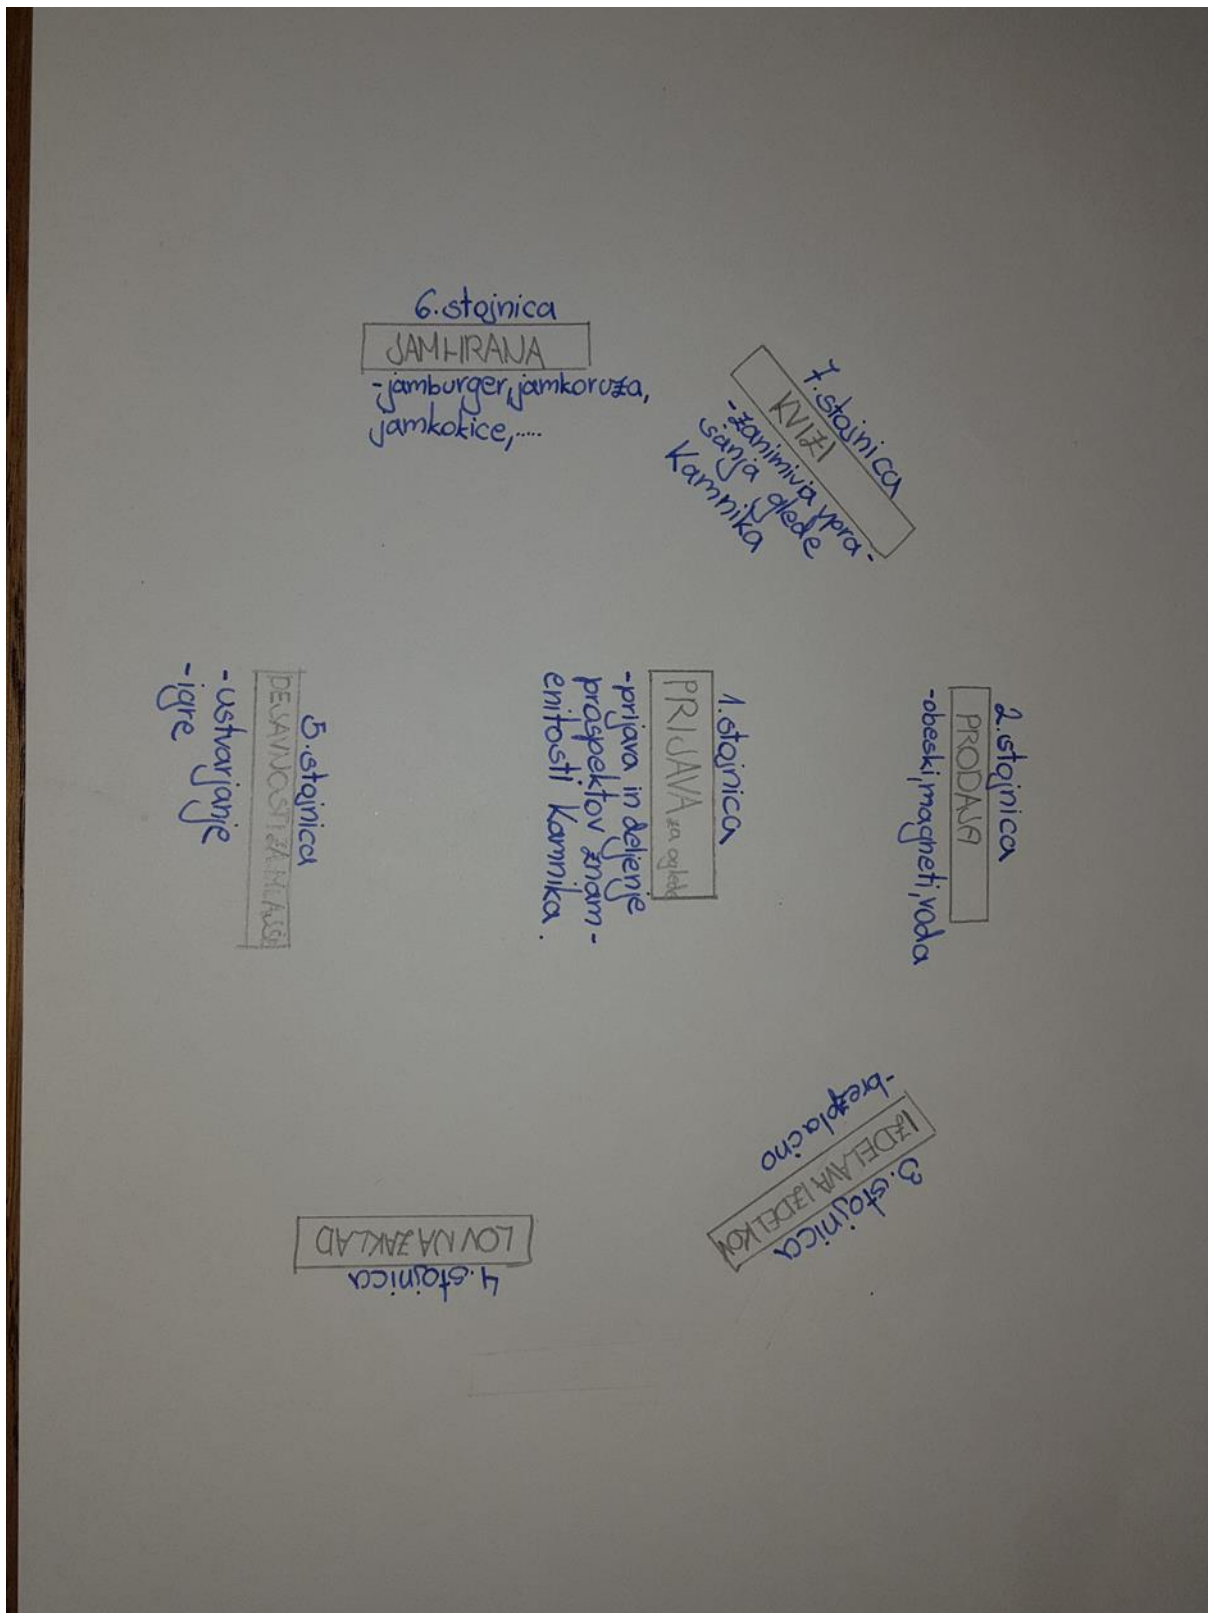 1. stojnica
PRIJAVA za oglede
-prijava in deljenje
prospektov znam-
enitosti Kamnika.
2. stojnica
PRODAJA
-obeski, magneti, voda
3. stojnica
IZDELAVA IZDELKOV
-brezplačno
4. stojnica
LOV NA ZAKLAD
5. stojnica
DEJAVNOSTI ZA MLAJŠE
-ustvarjanje
-igre
6. stojnica
JAMHRANA
-jamburger, jamkoruza,
jamkokice,.....
7. stojnica
KVIZI
-zanimiva vpra-
šanja glede
Kamnika